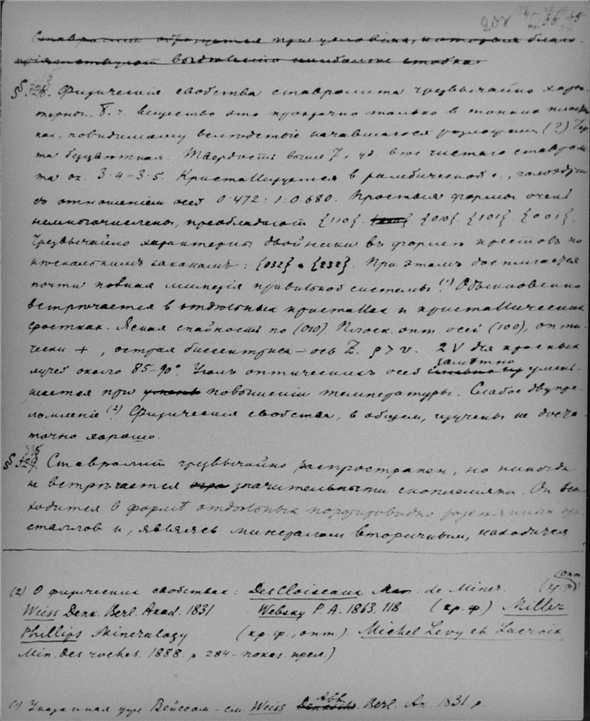 Ставролит образуется при условиях, которые благо-
приятствуют
§ Физические свойства ставролита чрезвычайно харак-
терны. вещество это прозрачно только в тонких пластин-
ках, повидимому вследствие начавшегося разложения (?) Чер-
та бесцветная. Твердость выше 7, уд. вес чистого ставроли-
та ок. 3.4–3.5. Кристаллизуется в ромбической с.,
с отношением осей 0.472 : 1 : 0.680. Простые формы очень
немногочислены, преобладают {110} {010} {101} {001}.
Чрезвычайно характерны двойники в форме крестов по
нескольким законам: {032} и {232}. При этом достигается
почти полная мимезия правильной системы.(1) Обыкновенно
встречается в отдельных кристаллах и кристаллических
сростках. Ясная спайность по (010) Плоск. опт. осей (100), опти-
чески +, острая биссектриса – ось Z. ρ > v. 2V для красных
лучей около 85–90°. Угол оптических осей заметно умень-
шается при повышении температуры. Слабое двупре-
ломление (2) Физические свойства, в общем, изучены не доста-
точно хорошо.
§ Ставролит чрезвычайно распространен, но никогда
не встречается значительными скоплениями. Он на-
ходится в форме отдельных порфировидно кри-
сталлов и, являясь минералом вторичным, находится
(2) О физических свойствах: DesCloiseaux Man. de Miner.
Weiss Denk. Berl. Akad. 1831 Websky P. A. 1863. 118 (кр. ф) Miller
Phillips Mineralogy (кр. ф, опт). Michel Levy et Lacroix
Min. des roches. 1888. p. 284 – показ. прел.)
(1) Указанная уже Вейссом – см Weiss Abh. Berl. Ak. 1831 p.